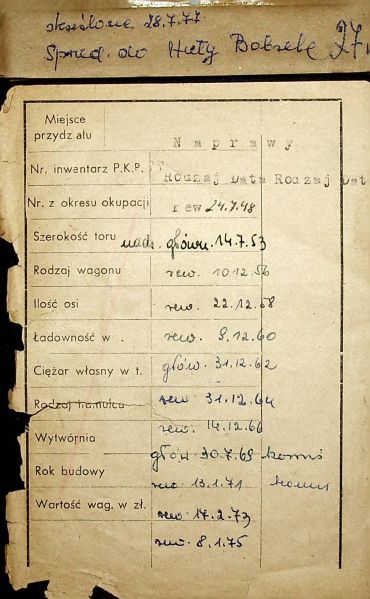 skreślono 28.7.77
Sprzed. do Huty Bobrek
Miejsce
przydz ału
Naprawy
Nr. inwentarz P.K.P.
Rodzaj Data Rodzaj Dat
Nr. z okresu okupacji
rew 24.7.48
Szerokość toru
nads. główn. 14.7.53
Rodzaj wagonu
rew. 10.12.56
Ilość osi
rew. 22.12.58
Ładowność w .
rew. 9.12.60
Ciężar własny w t.
głów. 31.12.62
Rodzaj hamulca
rew 31.12.64
Wytwórnia
rew. 14.12.66
głów 30.7.69
Rok budowy
rew. 13.1.71
Wartość wag. w zł.
rew 17.2.73
rew. 8.1.75